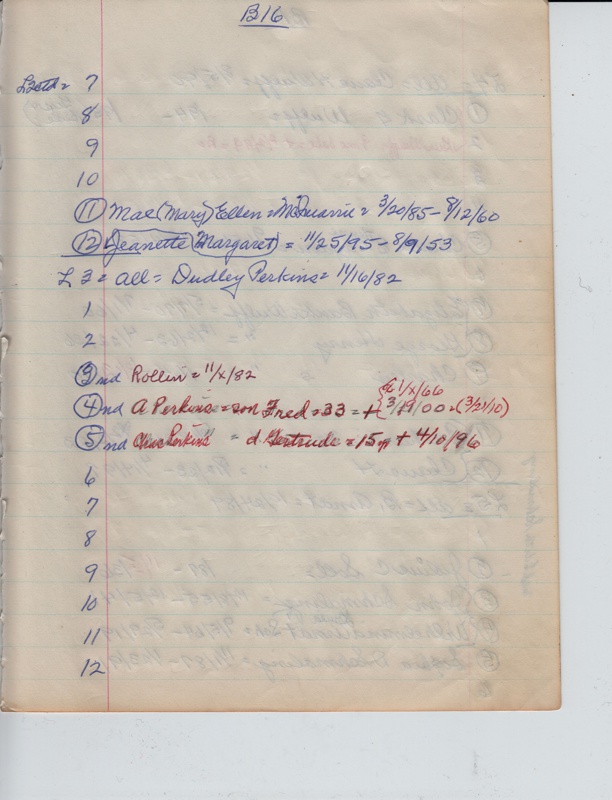 B16
L2 ctd = 7
8
9
10
11 Mae (Mary) Ellen = McQuarrie = 3/20/85 - 8/12/60
12 Jeanette (Margaret) = 11/25/95 - 8/9/53
L 3 = all = Dudley Perkins = 11/16/82
1
2
3 nd Rollin = 11/x/82
61/x/66
4 nd A Perkins = son Fred = 33 = + 3/19/00 (3/21/10)
5 nd Chas Perkins = d. Gertrude = 15 + 4/10/96
6
7
8
9
10
11
12